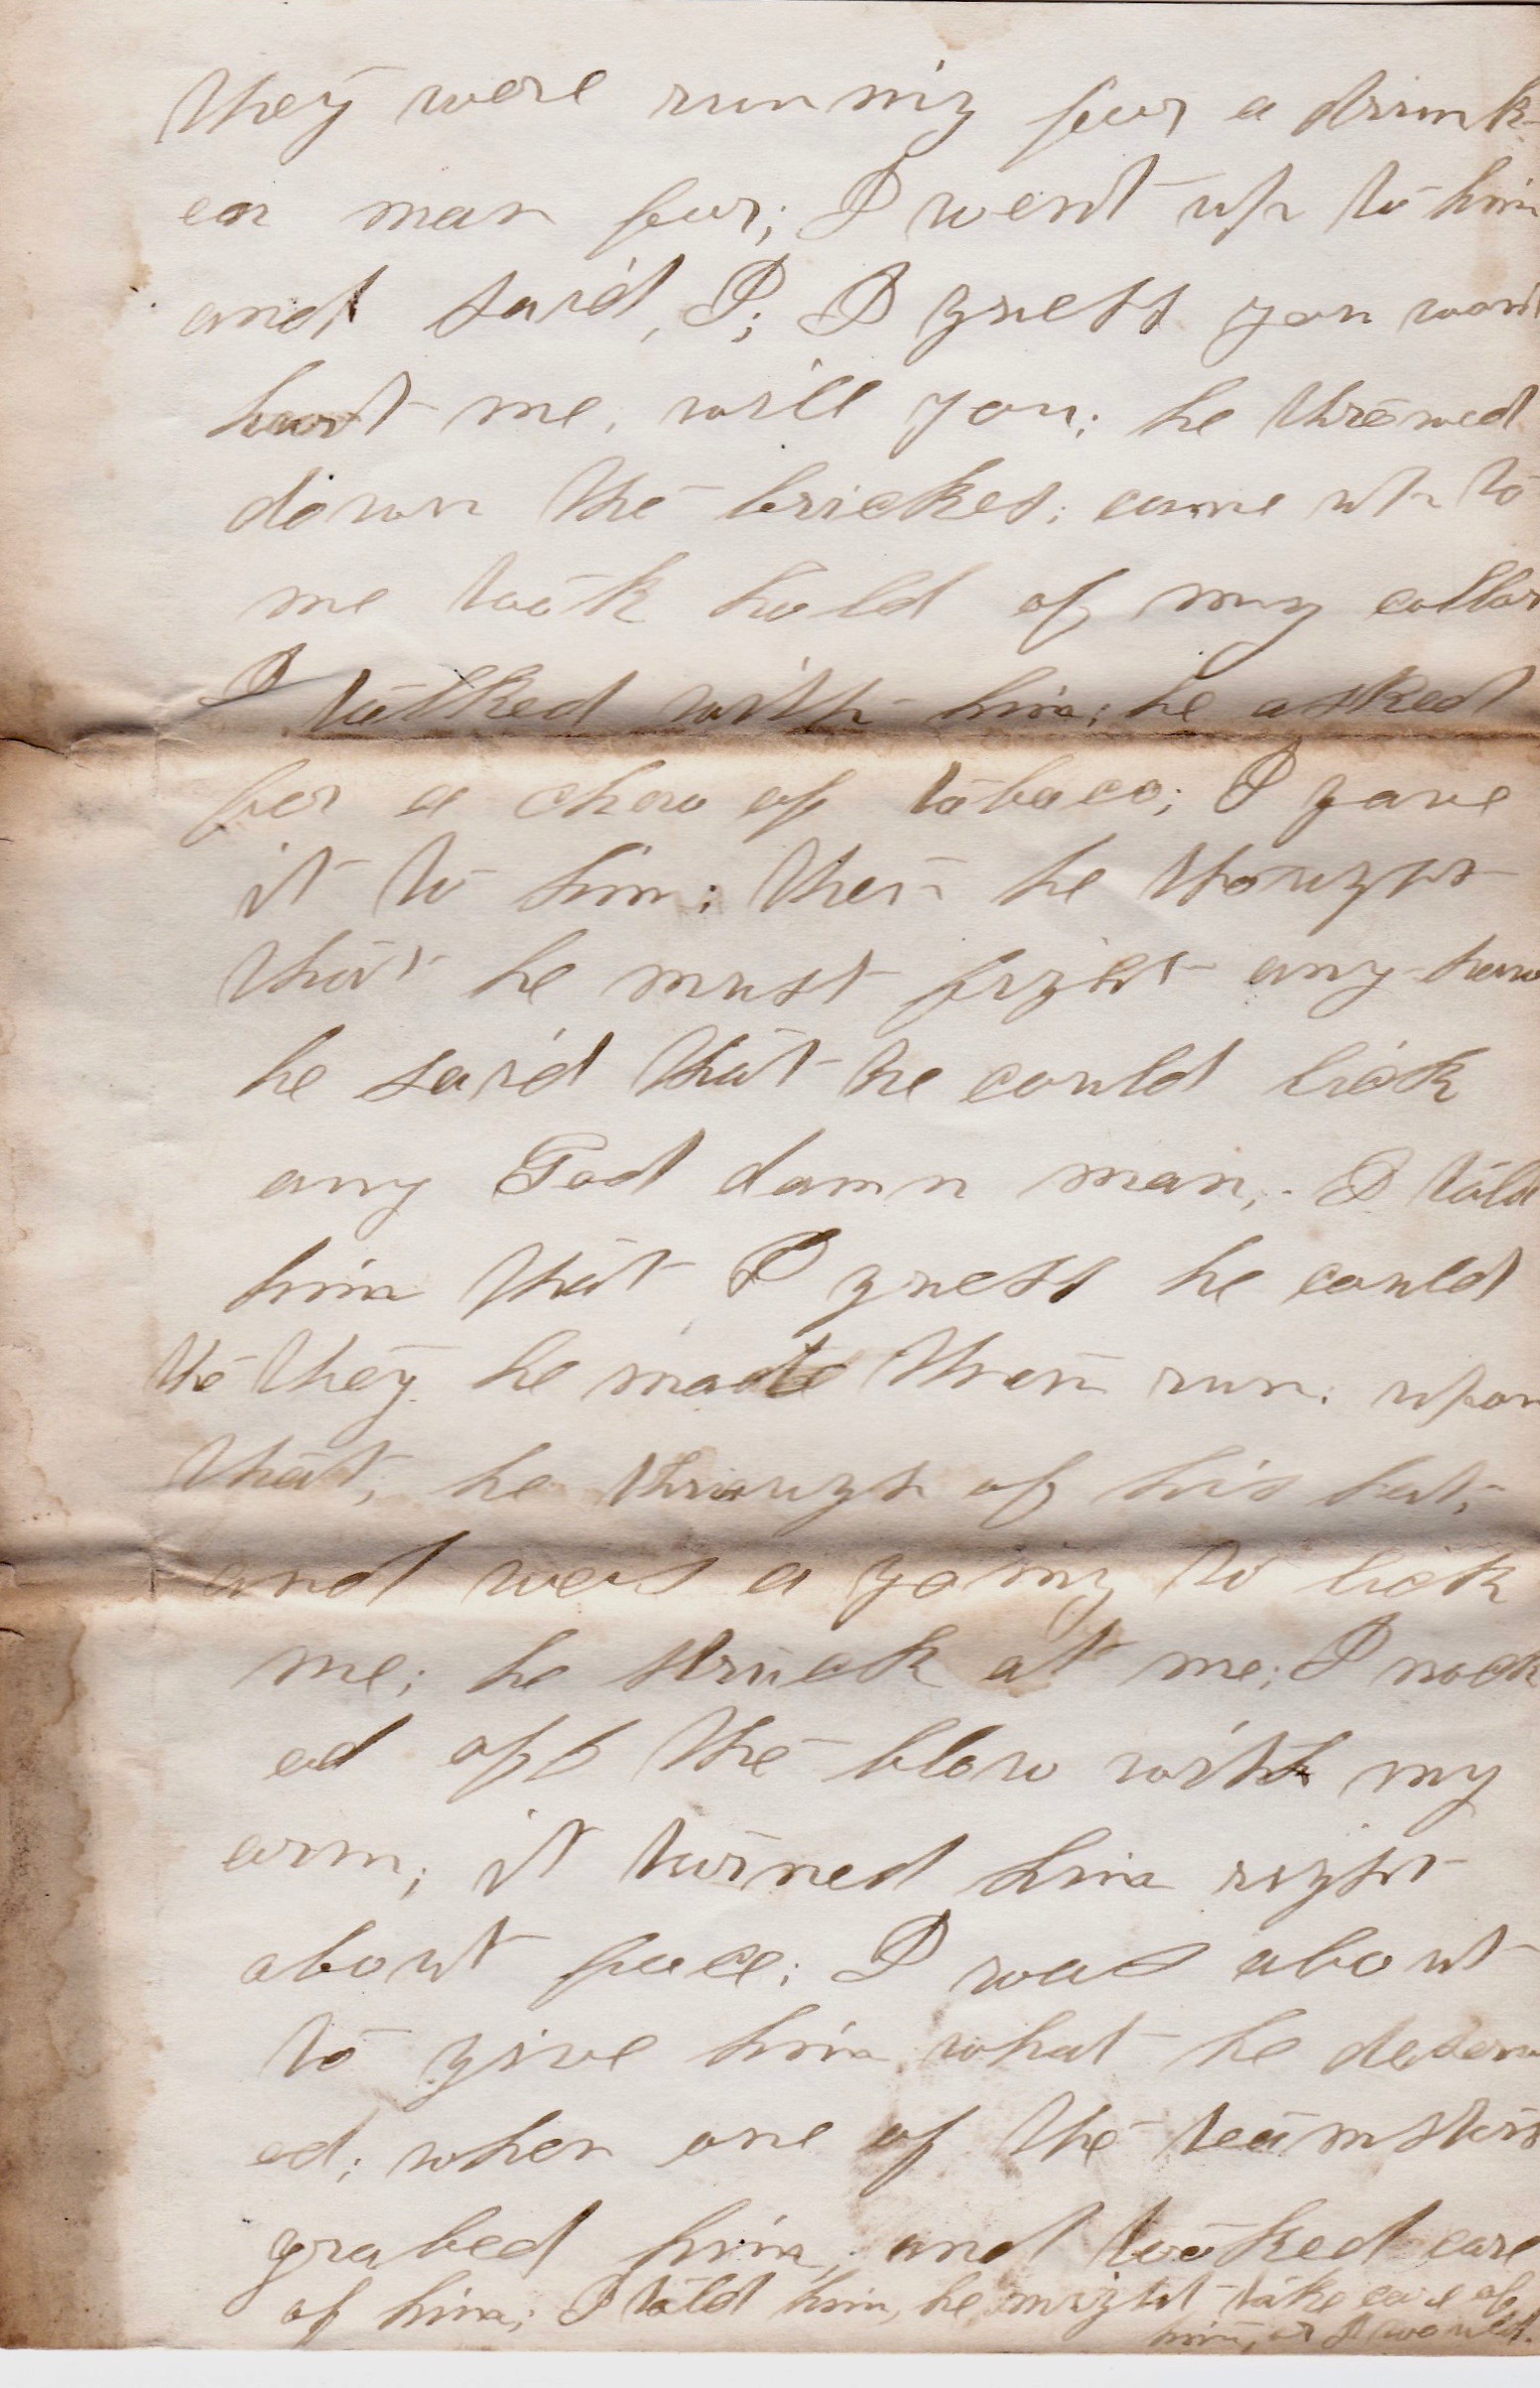 they were running four a drunk-
en man four; I went up to him
and said, I; I guess you wont
hurt me, will you; he throwed
down the brickes; came up to
me took hold of my collar
I talked with him; he asked
for a chew of tobaco; I gave
it to him; then he thought
that he must fight any-how
he said that he could lick
any God damn man, I told
him that I guess he could
the they he made them run; upon
that, he through of his hat;
and was a going to lick
me; he struck at me; I nock
ed off the blow with my
arm; it turned him right
about face; I was about
to give him what he deserv
ed; when one of the teamsters
grabed him, and tooked care
of him; I told him, he might take care of
him, or I would.